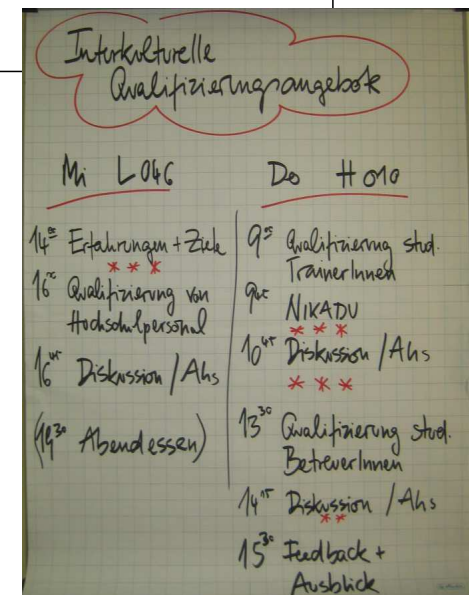 Interkulturelle
Qualifizierungsangebote
Mi L046
14⁰⁰ Erfahrungen + Ziele
* * *
Qualifizierung von
Hochschulpersonal
16⁴⁵ Diskussion / AGs
(19³⁰ Abendessen)
Do H010
Qualifizierung stud.
TrainerInnen
9⁴⁵ NIKADU
* * *
10⁴⁵ Diskussion / AGs
* * *
13³⁰ Qualifizierung stud.
BetreuerInnen
14¹⁵ Diskussion / AGs
* *
15³⁰ Feedback +
Ausblick